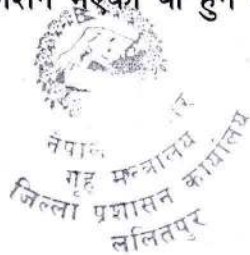 भएको वा हुन
नेपाल
गृह मन्त्रालय
जिल्ला प्रशासन कार्यालय
ललितपुर